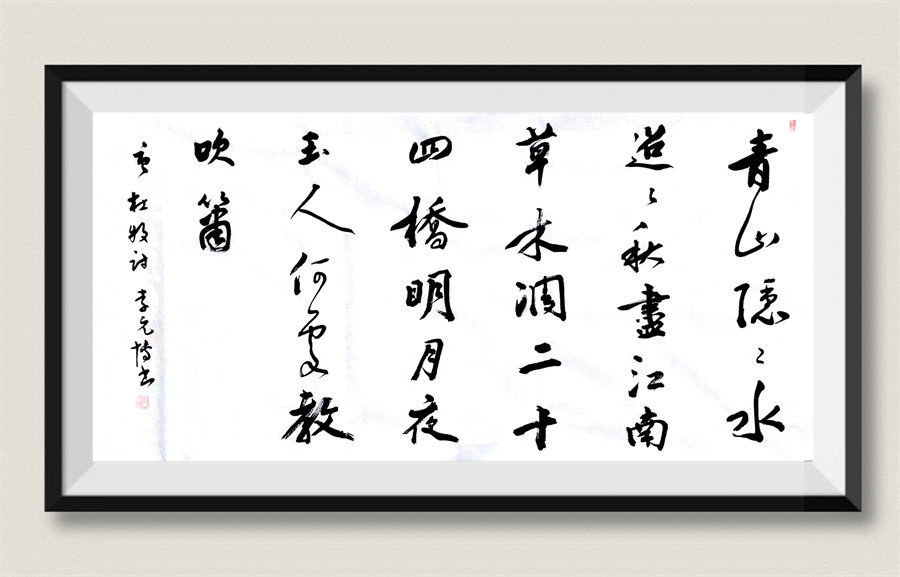 青山隱〻水
迢〻秋盡江南
草木凋二十
四橋明月夜
玉人何處教
吹簫
唐杜牧詩 李元博书